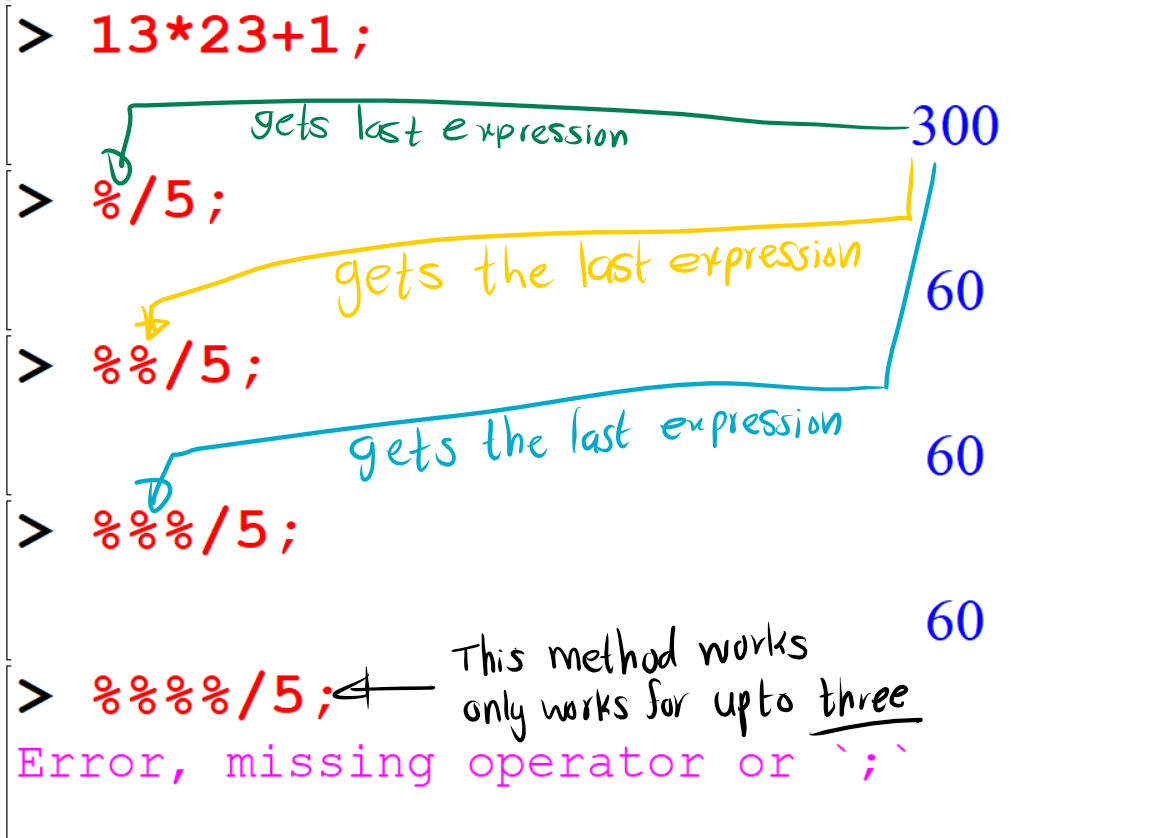 > 13*23+1;
gets last expression
300
> %/5;
gets the last expression
60
> %%/5;
gets the last expression
60
> %%%/5;
60
This method works
> %%%%/5;
only works for upto three
Error, missing operator or `;`